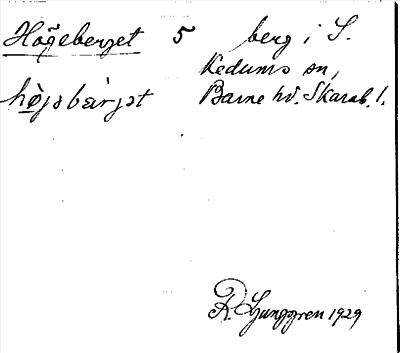 Högeberget 5 berg i S.
Kedums sn,
höjəbärjət Barne hd. Skarab. l.
R. Ljunggren 1929